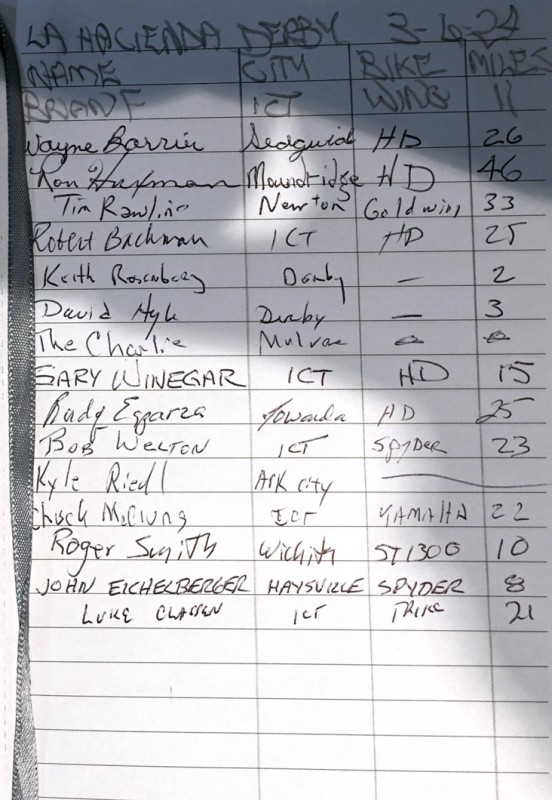 LA HACIENDA DERBY 3-6-24
NAME CITY BIKE MILES
BRIANT ICT WING 11
Wayne Barrier Sedgwick HD 26
Ron Moundridge HD 46
Tim Rawlins Newton Goldwing 33
Robert Bachman ICT HD 25
Keith Rosenberg Derby — 2
David Hyle Derby — 3
The Charlie Mulvane
GARY WINEGAR ICT HD 15
Rudy Esparza Towanda HD 25
BOB WELTON ICT SPYDER 23
Kyle Riedl Ark city —
Chuck McClung ICT YAMAHA 22
Roger Smith Wichita ST1300 10
JOHN EICHELBERGER HAYSVILLE SPYDER 8
LUKE CLASSEN ICT TRIKE 21